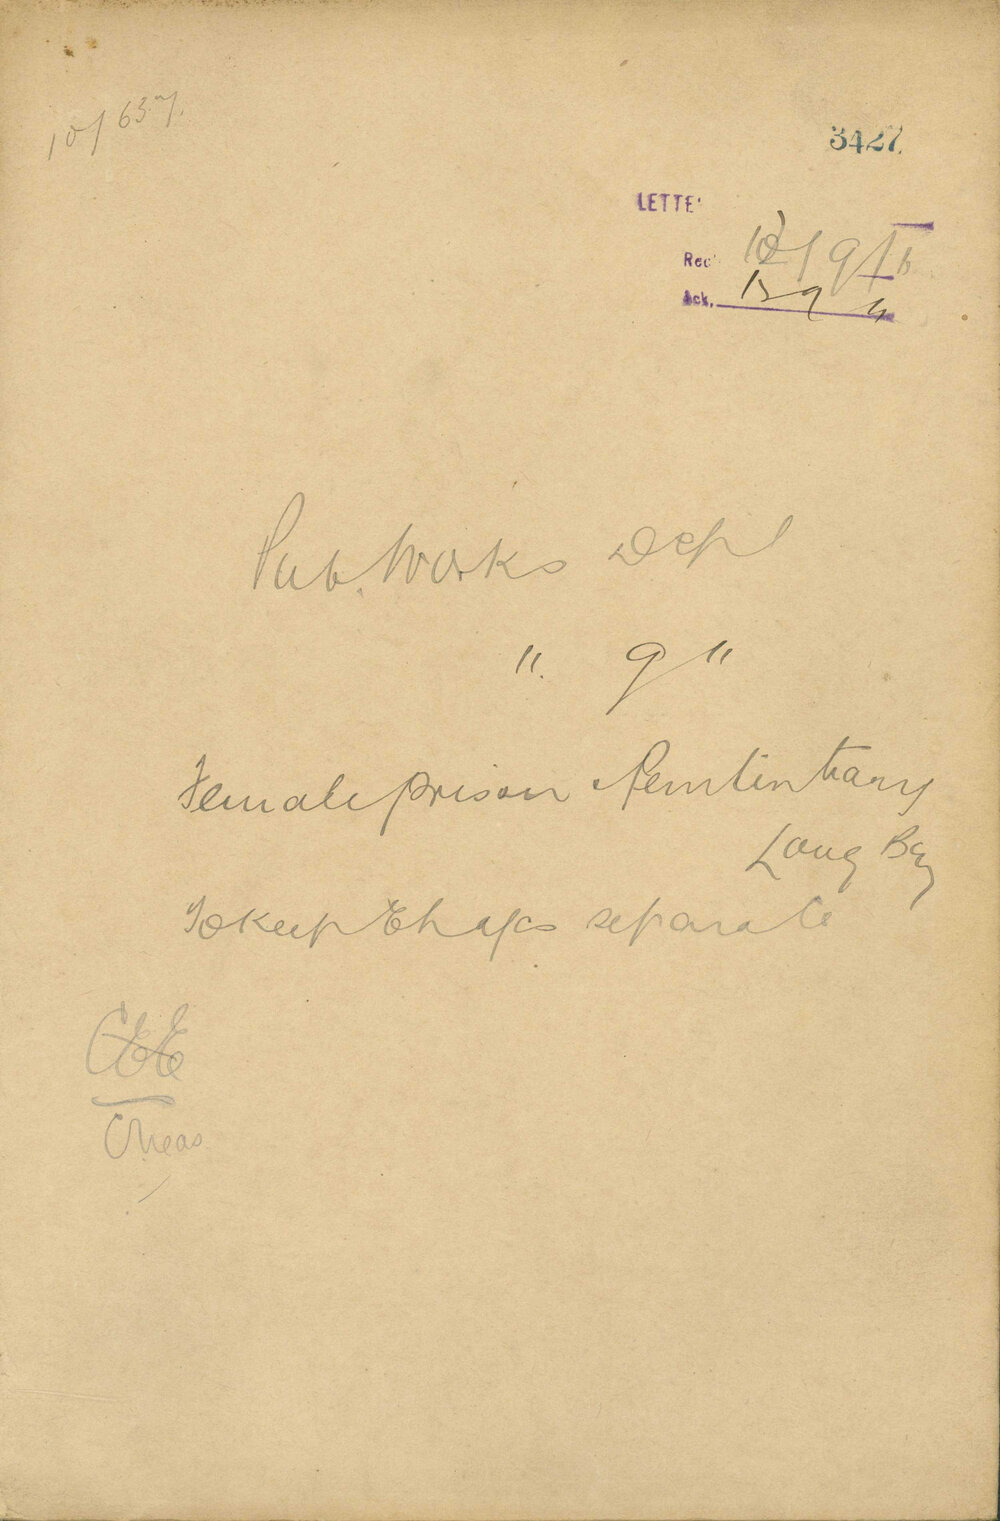 10/637.
3427
LETTE
Rec 12/9/
Ack. 13 9
Pub. Works Dept
" 9 "
Female prison Penitentiary
Long Bay
To keep Chgs separate
CEE
Meas